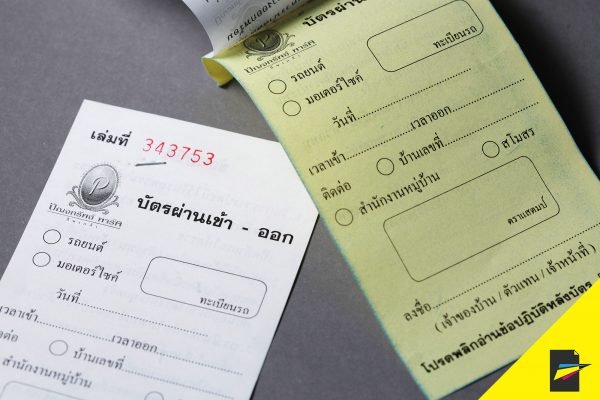 เล่มที่ 343753
ปัญจทรัพย์ พาร์ค
บัตรผ่านเข้า - ออก
รถยนต์
มอเตอร์ไซค์
ทะเบียนรถ
วันที่
เวลาเข้า เวลาออก
ติดต่อ
บ้านเลขที่
สำนักงานหมู่บ้าน
บัตรผ่านเข้า
ปัญจทรัพย์ พาร์ค
รถยนต์
มอเตอร์ไซค์
ทะเบียนรถ
วันที่
เวลาเข้า เวลาออก
ติดต่อ
บ้านเลขที่
สโมสร
สำนักงานหมู่บ้าน
ตราแสตมป์
ลงชื่อ
( เจ้าของบ้าน / ตัวแทน / เจ้าหน้าที่ )
โปรดพลิกอ่านข้อปฏิบัติหลังบัตร